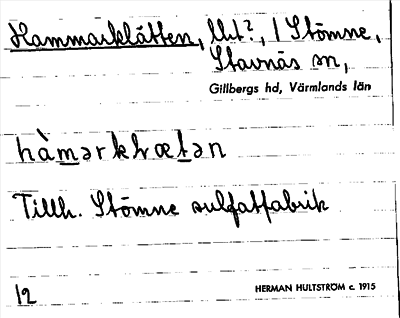 Hammarklätten, Ut?, 1 Stömne,
Stavnäs sn,
Gillbergs hd, Värmlands län
Tillh. Stömne sulfatfabrik
12
HERMAN HULTSTRÖM c. 1915